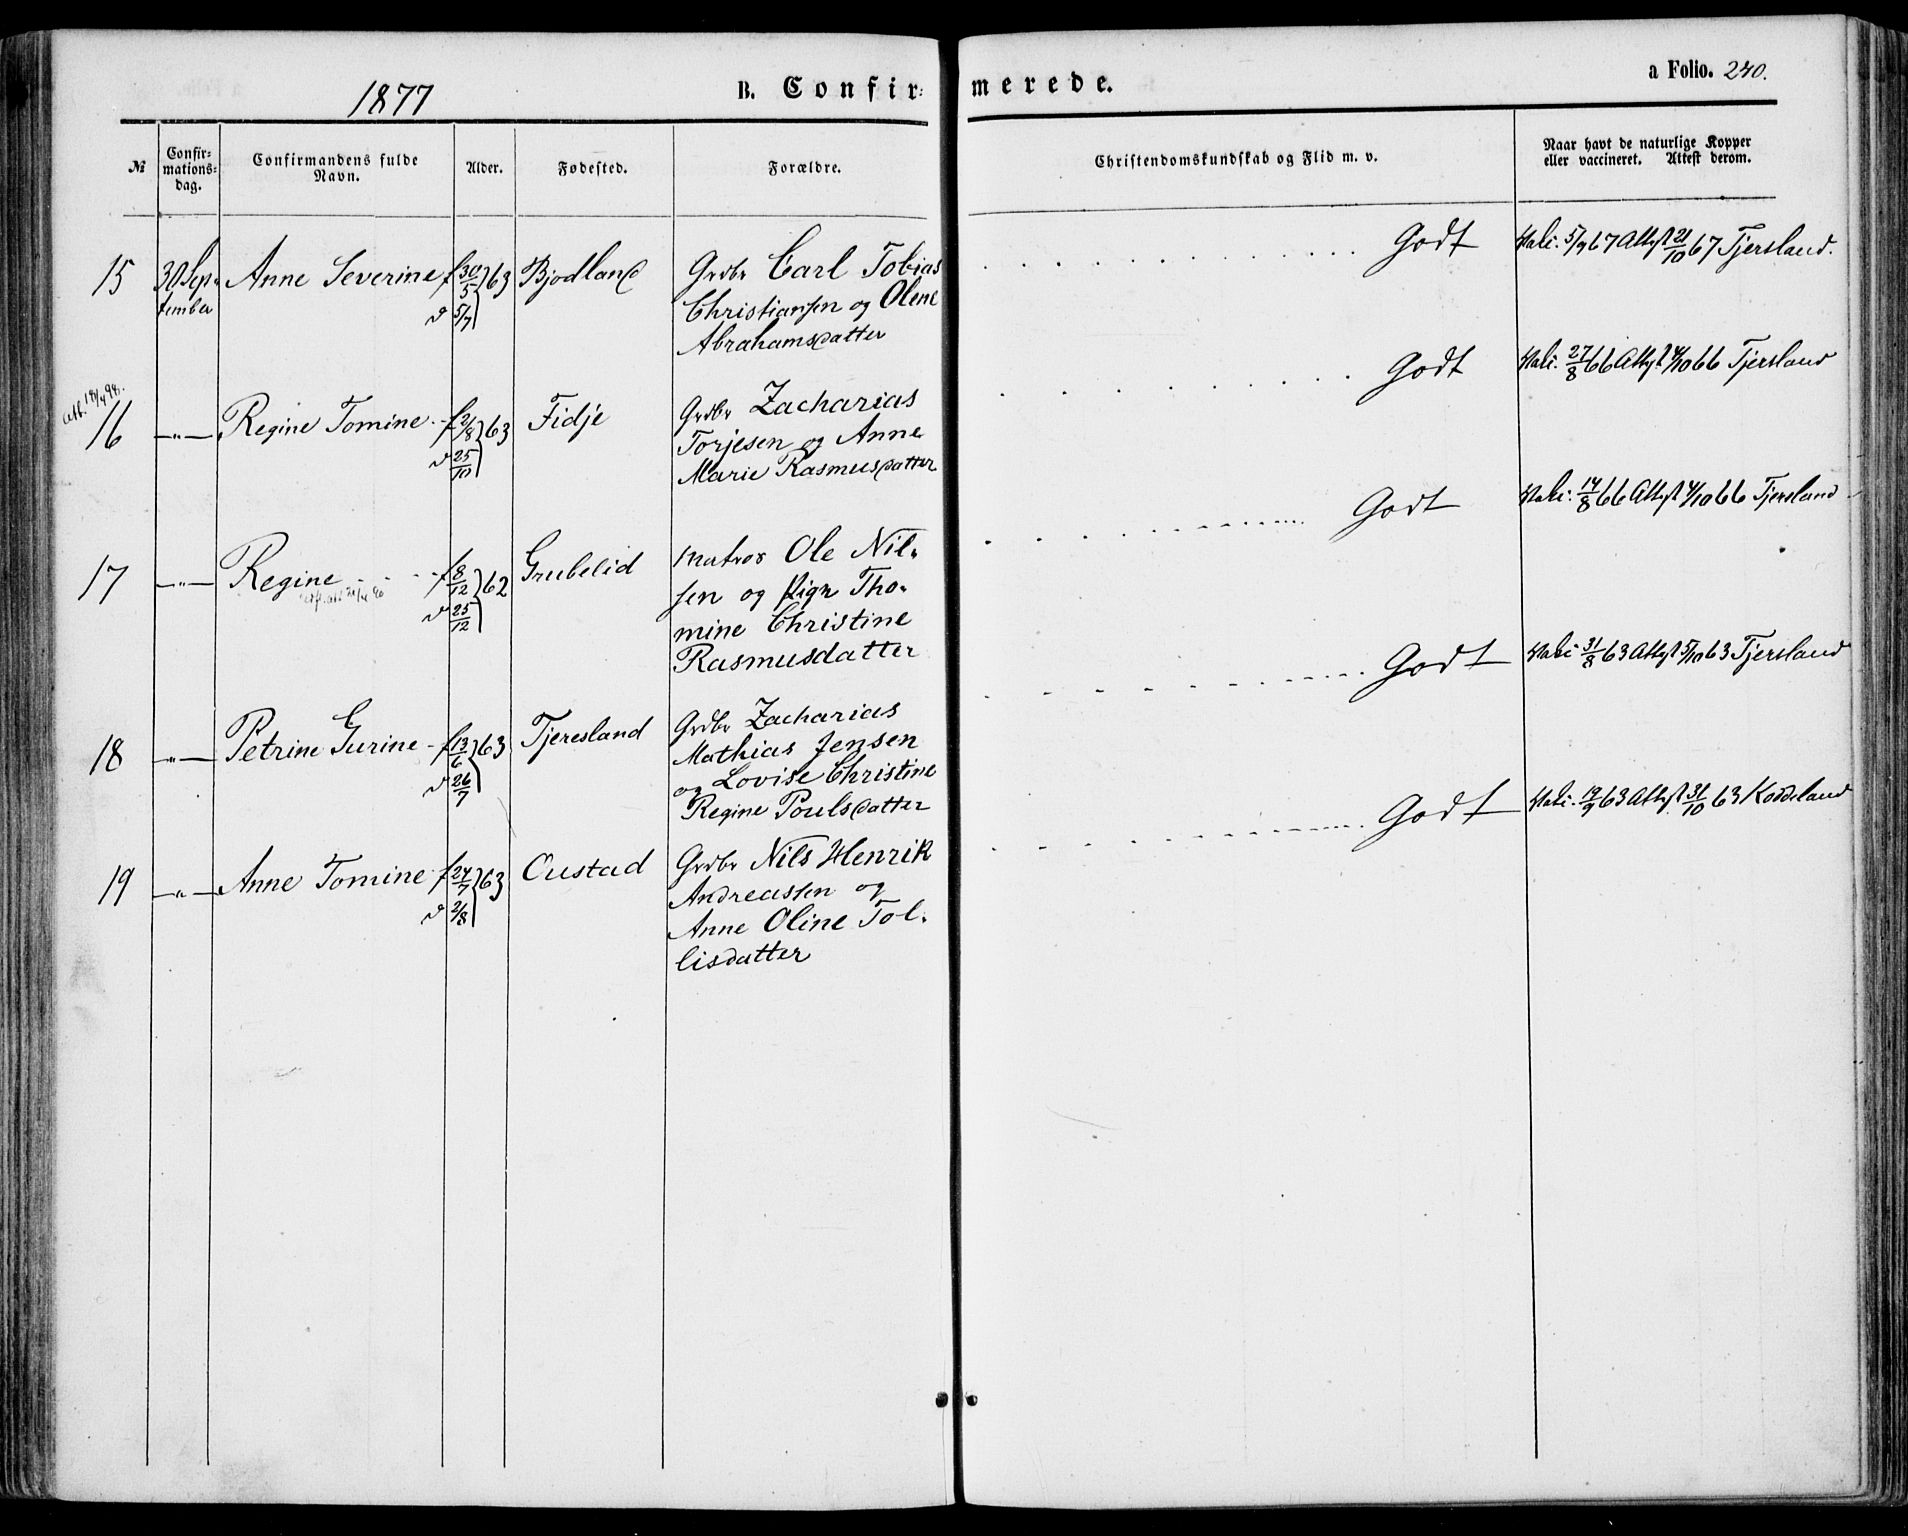 1877
B. Confir-
merede.
a Folio. 240.
№
Confir-
mations-
dag.
Confirmandens fulde
Navn.
Alder.
Fødested.
Forældre.
Christendomskundskab og Flid m. v.
Naar havt de naturlige Kopper
eller vaccineret. Attest derom.
15 30 Sep- Anne Severine f 30/5 63 Bjodland Grdbr Carl Tobias
tember d 5/7 Christiansen og Olene
Abrahamsdatter
Godt Vaki. 5/9 67 Attest 21/10 67 Tjersland.
att. 18/4 98.
16 —"— Regine Tomine f 2/8 63 Fidje Grdbr Zacharias
d 25/10 Torjesen og Anne
Marie Rasmusdatter
Godt Vaki. 27/8 66 Attest 4/10 66 Tjersland
17 —"— Regine f 8/12 62 Grubelid Matros Ole Nil-
d 25/12 sen og Pige Tho-
mine Christine
Rasmusdatter
Godt Vaki. 14/8 66 Attest 4/10 66 Tjersland
18 —"— Petrine Gurine f 13/6 63 Tjeresland Grdbr Zacharias
d 26/7 Mathias Jensen
og Lovise Christine
Regine Poulsdatter
Godt Vaki 31/8 63 Attest 5/10 63 Tjersland
19 —"— Anne Tomine f 24/7 63 Oustad Grdbr Nils Henrik
d 2/8 Andreassen og
Anne Oline Tol-
lisdatter
Godt Vaki. 14/9 63 Attest 31/10 63 Koddeland